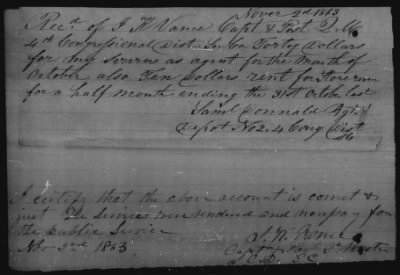 Novr 2d 1863
Recd of J H Vance Capt & Post Q. M.
4th Congressional Dist So. Ca Forty Dollars
for my services as agent for the Month of
October also Ten Dollars rent for Store room
for a half month ending the 31st October last
Saml Donnald Agt
Depot No 2, 4 Cong Dist
I certify that the above account is correct &
just The Services were rendered and necessary for
the Public Service
Nov 2nd 1863
Capt
S C